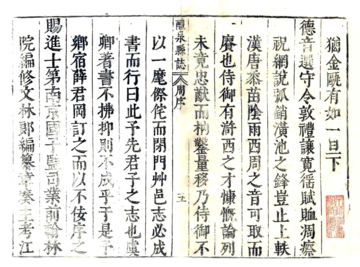 猶金甌有如一旦下
德音遴守令敦禮讓寬徭賦賙凋瘵
祝網說瓜銷潢池之鋒豈止上軼
漢唐黍苗陰雨西周之音可取而
賡也侍御有濟西之才慷慨論列
未竟忠猷而枘鑿量移乃侍御不
以一麾傺侘而閉門艸邑志必成
書而行曰此予先君子之志也虞
卿者書不拂抑則不成乎于是予
鄉宿薛君岡訂之而以不佞序之
賜進士第南京國子監司業前翰林
院編修文林郎編纂章奏
醴泉縣志
周序
五